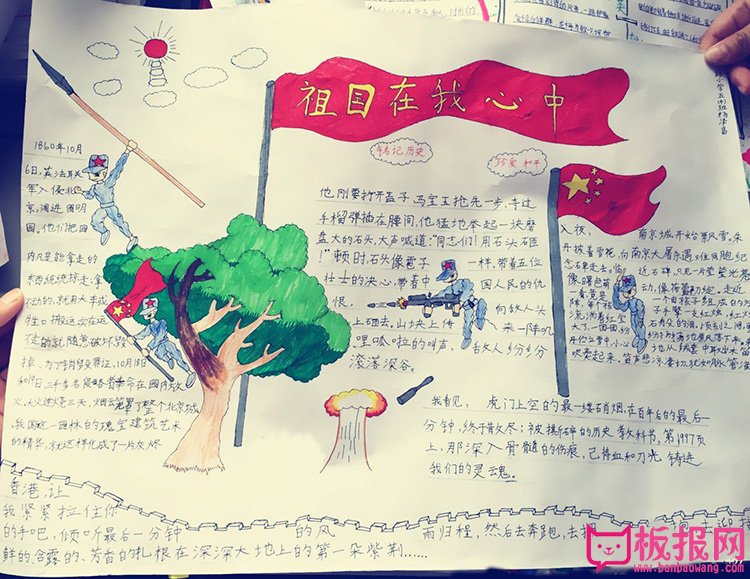 祖国在我心中
铭记历史
珍爱和平
1860年10月
6日,英法联
军入侵北
京,闯进圆明
园。他们把园
内凡是能拿走的
东西统统掠走,拿
不动的,就用大车或
牲口搬运,实在运
不走的,就随意破坏、毁
掉、为了销毁罪证,10月18日
和19日,三千多名侵略者奉命在园内放
火,大火连烧三天,烟云笼罩了整个北京城。
我国这一园林的瑰宝、建筑艺术
的精华,就这样化成了一片灰烬
他刚要拧开盖子,马宝玉抢先一步,夺过
手榴弹插在腰间,他猛地举起一块磨
盘大的石头,大声喊道:"同志们!用石头砸
!"顿时,石头像雹子一样,带着五位
壮士的决心,带着中国人民的仇
恨,向敌人头
上砸去。山坡上传来一阵叽
哩呱啦的叫声,敌人纷纷
滚落深谷。
入夜,南京城开始寒风雪,朱
丹披着雪花,向南京大屠杀遇难同胞纪
念碑走去。
我看见,虎门上空的最一缕硝烟,在百年后的最后一
分钟,终于散尽;被撕碎的历史教科书,第1997页
上,那深入骨髓的伤痕,已将血和刀光铸进
我们的灵魂。
香港,让
我紧紧拉住你
的手吧,倾听最后一分钟的风雨归程,然后去奔跑,去拥抱,去迎接
鲜的、含露的、芳香的扎根在深深大地上的第一朵紫荆……
板报网
www.banbaowang.com